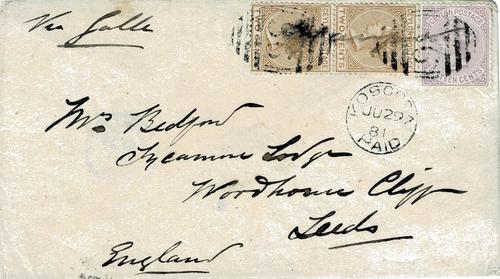 Via Galle
TWO CENTS
TWO CENTS
CEYLON POSTAGE
TEN CENTS
JU 29
81
PAID
Mrs Bedford
Sycamore Lodge
Woodhouse Cliff
Leeds
England